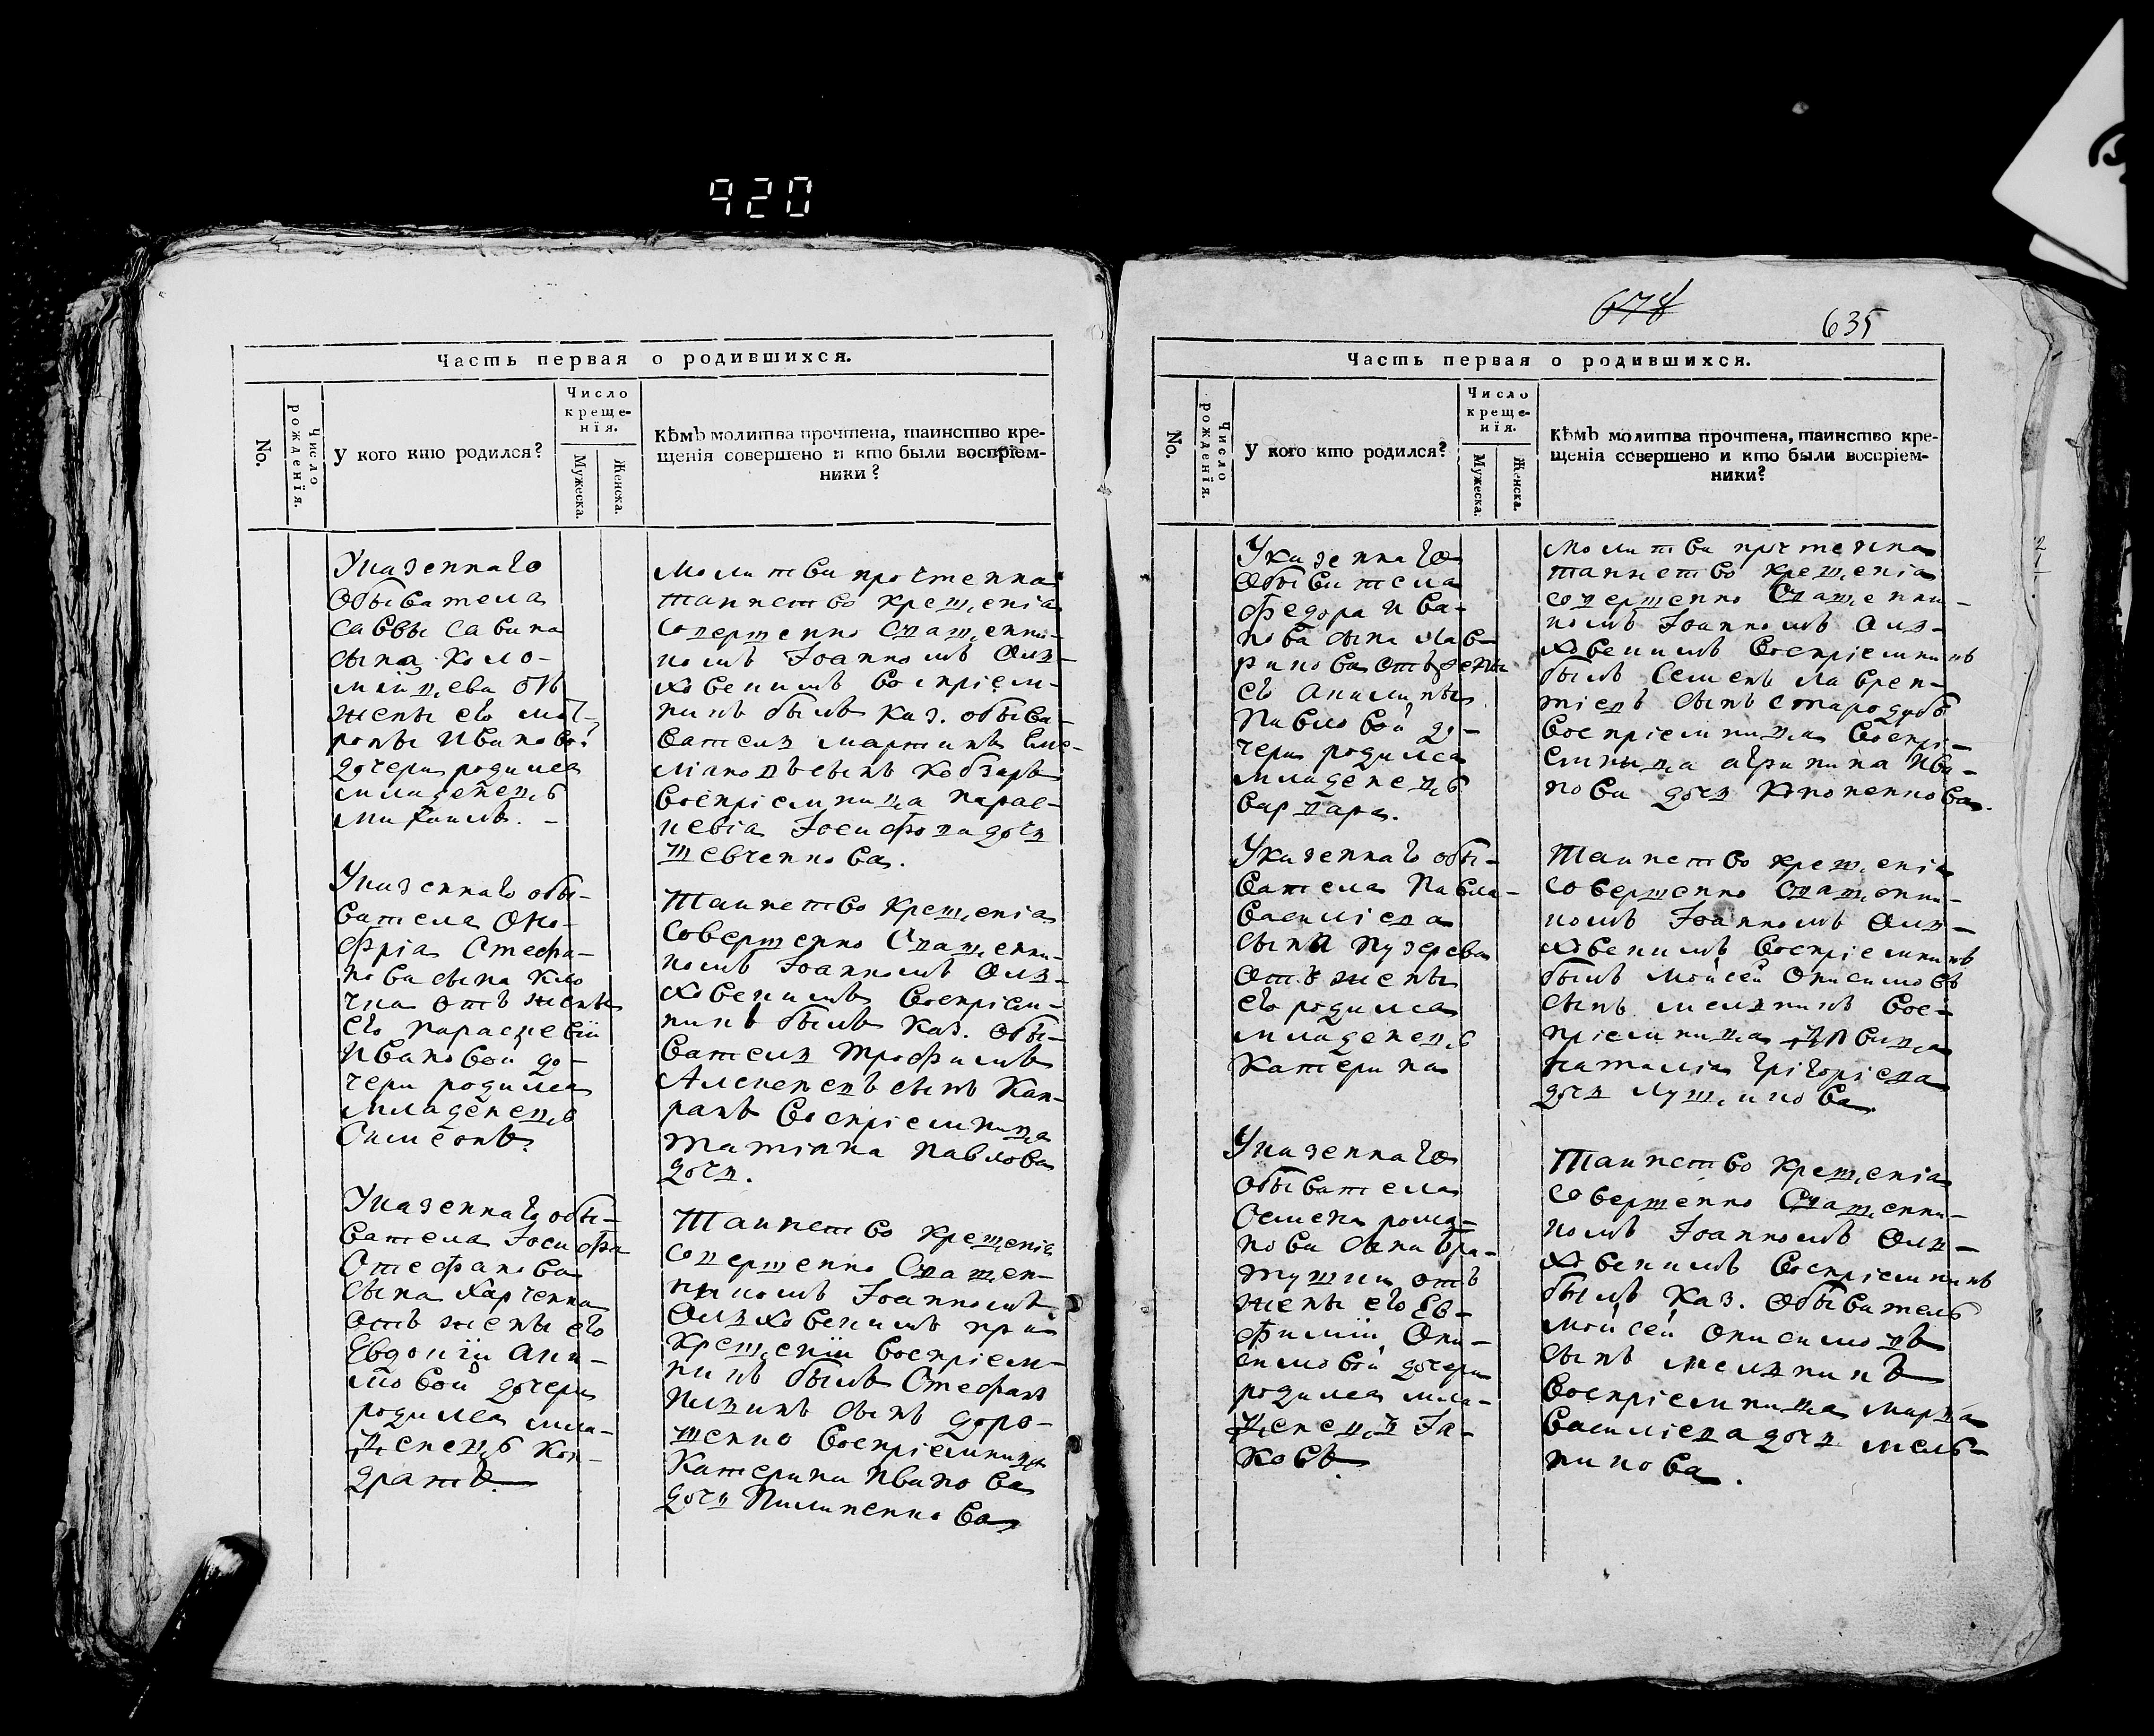 920
Часть первая о родившихся.
No.
Число рожденїя.
У кого кто родился?
Число
креще-
нїя.
Мужеска.
Женска.
Кѣмъ молитва прочтена, таинство кре-
щенїя совершено и кто были воспрїем-
ники?
Указеннаго
Обывателя
Саввы Савина
сына Коло-
мийцева отъ
жены его Мат-
роны Ивановой
дочери родился
младенецъ
Михаилъ. –
Молитви прочтенна
таинство крещенія
совершенно Священни-
комъ Іоанномъ Оль-
ховскимъ воспріем-
никъ былъ каз. обыва-
ватель Мартинъ Еме-
ліановъ сынъ Кобзарь
воспріемница Парас-
кевіа Іосифова дочь
Шевченкова.
Указеннаго обы-
вателя Оно-
фріа Стефа-
нова сына
отъ жены
его Параскевіи
Ивановой до-
чери родился
младенецъ
Симеонъ.
Таинство крещеніа
совершенно Священни-
комъ Іоанномъ Оль-
ховскимъ воспріем-
никъ былъ каз. обы-
ватель Трофимъ
сынъ
воспріемница
Татіана Павлова
дочь.
Указеннаго обы-
вателя Іосифа
Стефанова
сына Харченка
отъ жены его
Евдокіи
дочери
родился мла-
денецъ Кон-
дратъ
Таинство крещеніа
совершенно Священ-
никомъ Іоанномъ
Ольховскимъ при
крещеніи воспріем-
никъ былъ Стефанъ
сынъ Доро-
шенко воспріемница
Катерина Иванова
дочь Пилипенкова
678
635
Часть первая о родившихся.
No.
Число рожденїя.
У кого кто родился?
Число
креще-
нїя.
Мужеска.
Женска.
Кѣмъ молитва прочтена, таинство кре-
щенїя совершено и кто были воспрїем-
ники?
Указеннаго
Обывателя
Федора Ива-
нова сына Лав-
ринова отъ жени
его Акилины
Павловой до-
чери родился
младенецъ
Варвара.
Молитви прочтенна
таинство крещеніа
совершенно Священни-
комъ Іоанномъ Оль-
ховскимъ воспріемникъ
былъ Семенъ Лаврен-
тіевъ сынъ Стародубъ
воспріемница воспрі-
емница Агрипина Ива-
нова дочь Кононенкова.
Указеннаго обы-
вателя Павла
Василіева
сына Пузерева
отъ жены
его родился
младенецъ
Катерина
Таинство крещеніа
совершенно Священни-
комъ Іоанномъ Оль-
ховскимъ воспріемникъ
былъ Мойсей Онисимовъ
сынъ Мельникъ вос-
пріемница дѣвица
Наталіа Григоріева
дочь
Указеннаго
обывателя
Семена Рома-
нова сына Бра-
тушки отъ
жены его Ев-
фиміи Они-
симовой дочери
родился мла-
денецъ Іа-
ковъ
Таинство крещеніа
совершенно Священни-
комъ Іоанномъ Оль-
ховскимъ воспріемникъ
былъ каз. обыватель
Мойсей Онисимовъ
сынъ Мельникъ
воспріемница Марфа
Василіева дочь Мель-
никова.